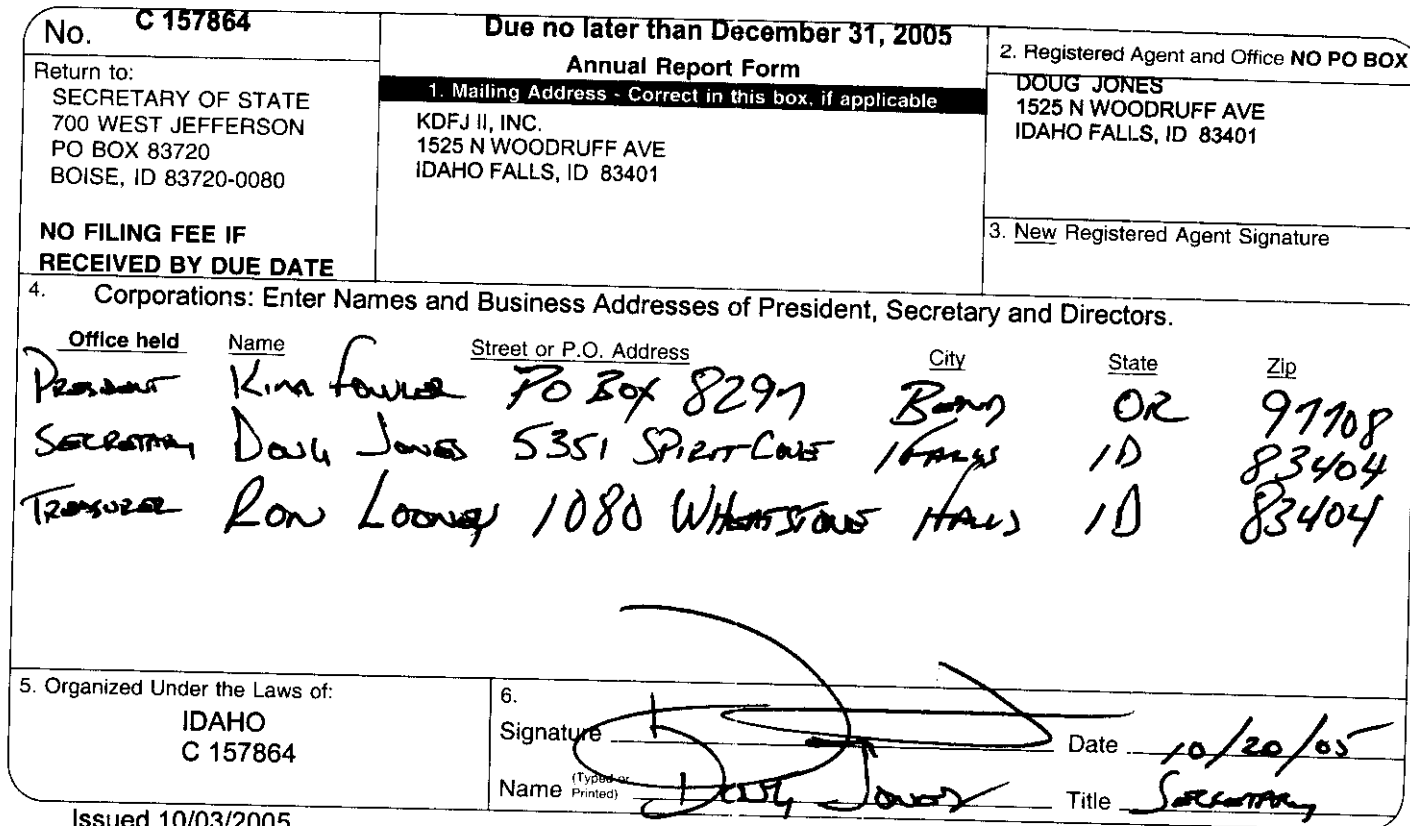 No. C 157864
Return to:
SECRETARY OF STATE
700 WEST JEFFERSON
PO BOX 83720
BOISE, ID 83720-0080
NO FILING FEE IF
RECEIVED BY DUE DATE
Due no later than December 31, 2005
Annual Report Form
1. Mailing Address - Correct in this box, if applicable
KDFJ II, INC.
1525 N WOODRUFF AVE
IDAHO FALLS, ID 83401
2. Registered Agent and Office NO PO BOX
DOUG JONES
1525 N WOODRUFF AVE
IDAHO FALLS, ID 83401
3. New Registered Agent Signature
4. Corporations: Enter Names and Business Addresses of President, Secretary and Directors.
Office held Name Street or P.O. Address City State Zip
PRESIDENT Kim Fowler PO Box 8297 Bend OR 97708
SECRETARY Doug Jones 5351 SPIRIT COVE IFALLS ID 83404
TREASURER RON LOONEY 1080 WHEATSTONE IFALLS ID 83404
5. Organized Under the Laws of:
IDAHO
C 157864
6.
Signature Date 10/20/05
Name (Typed or Printed) Doug Jones Title Secretary
Issued 10/03/2005